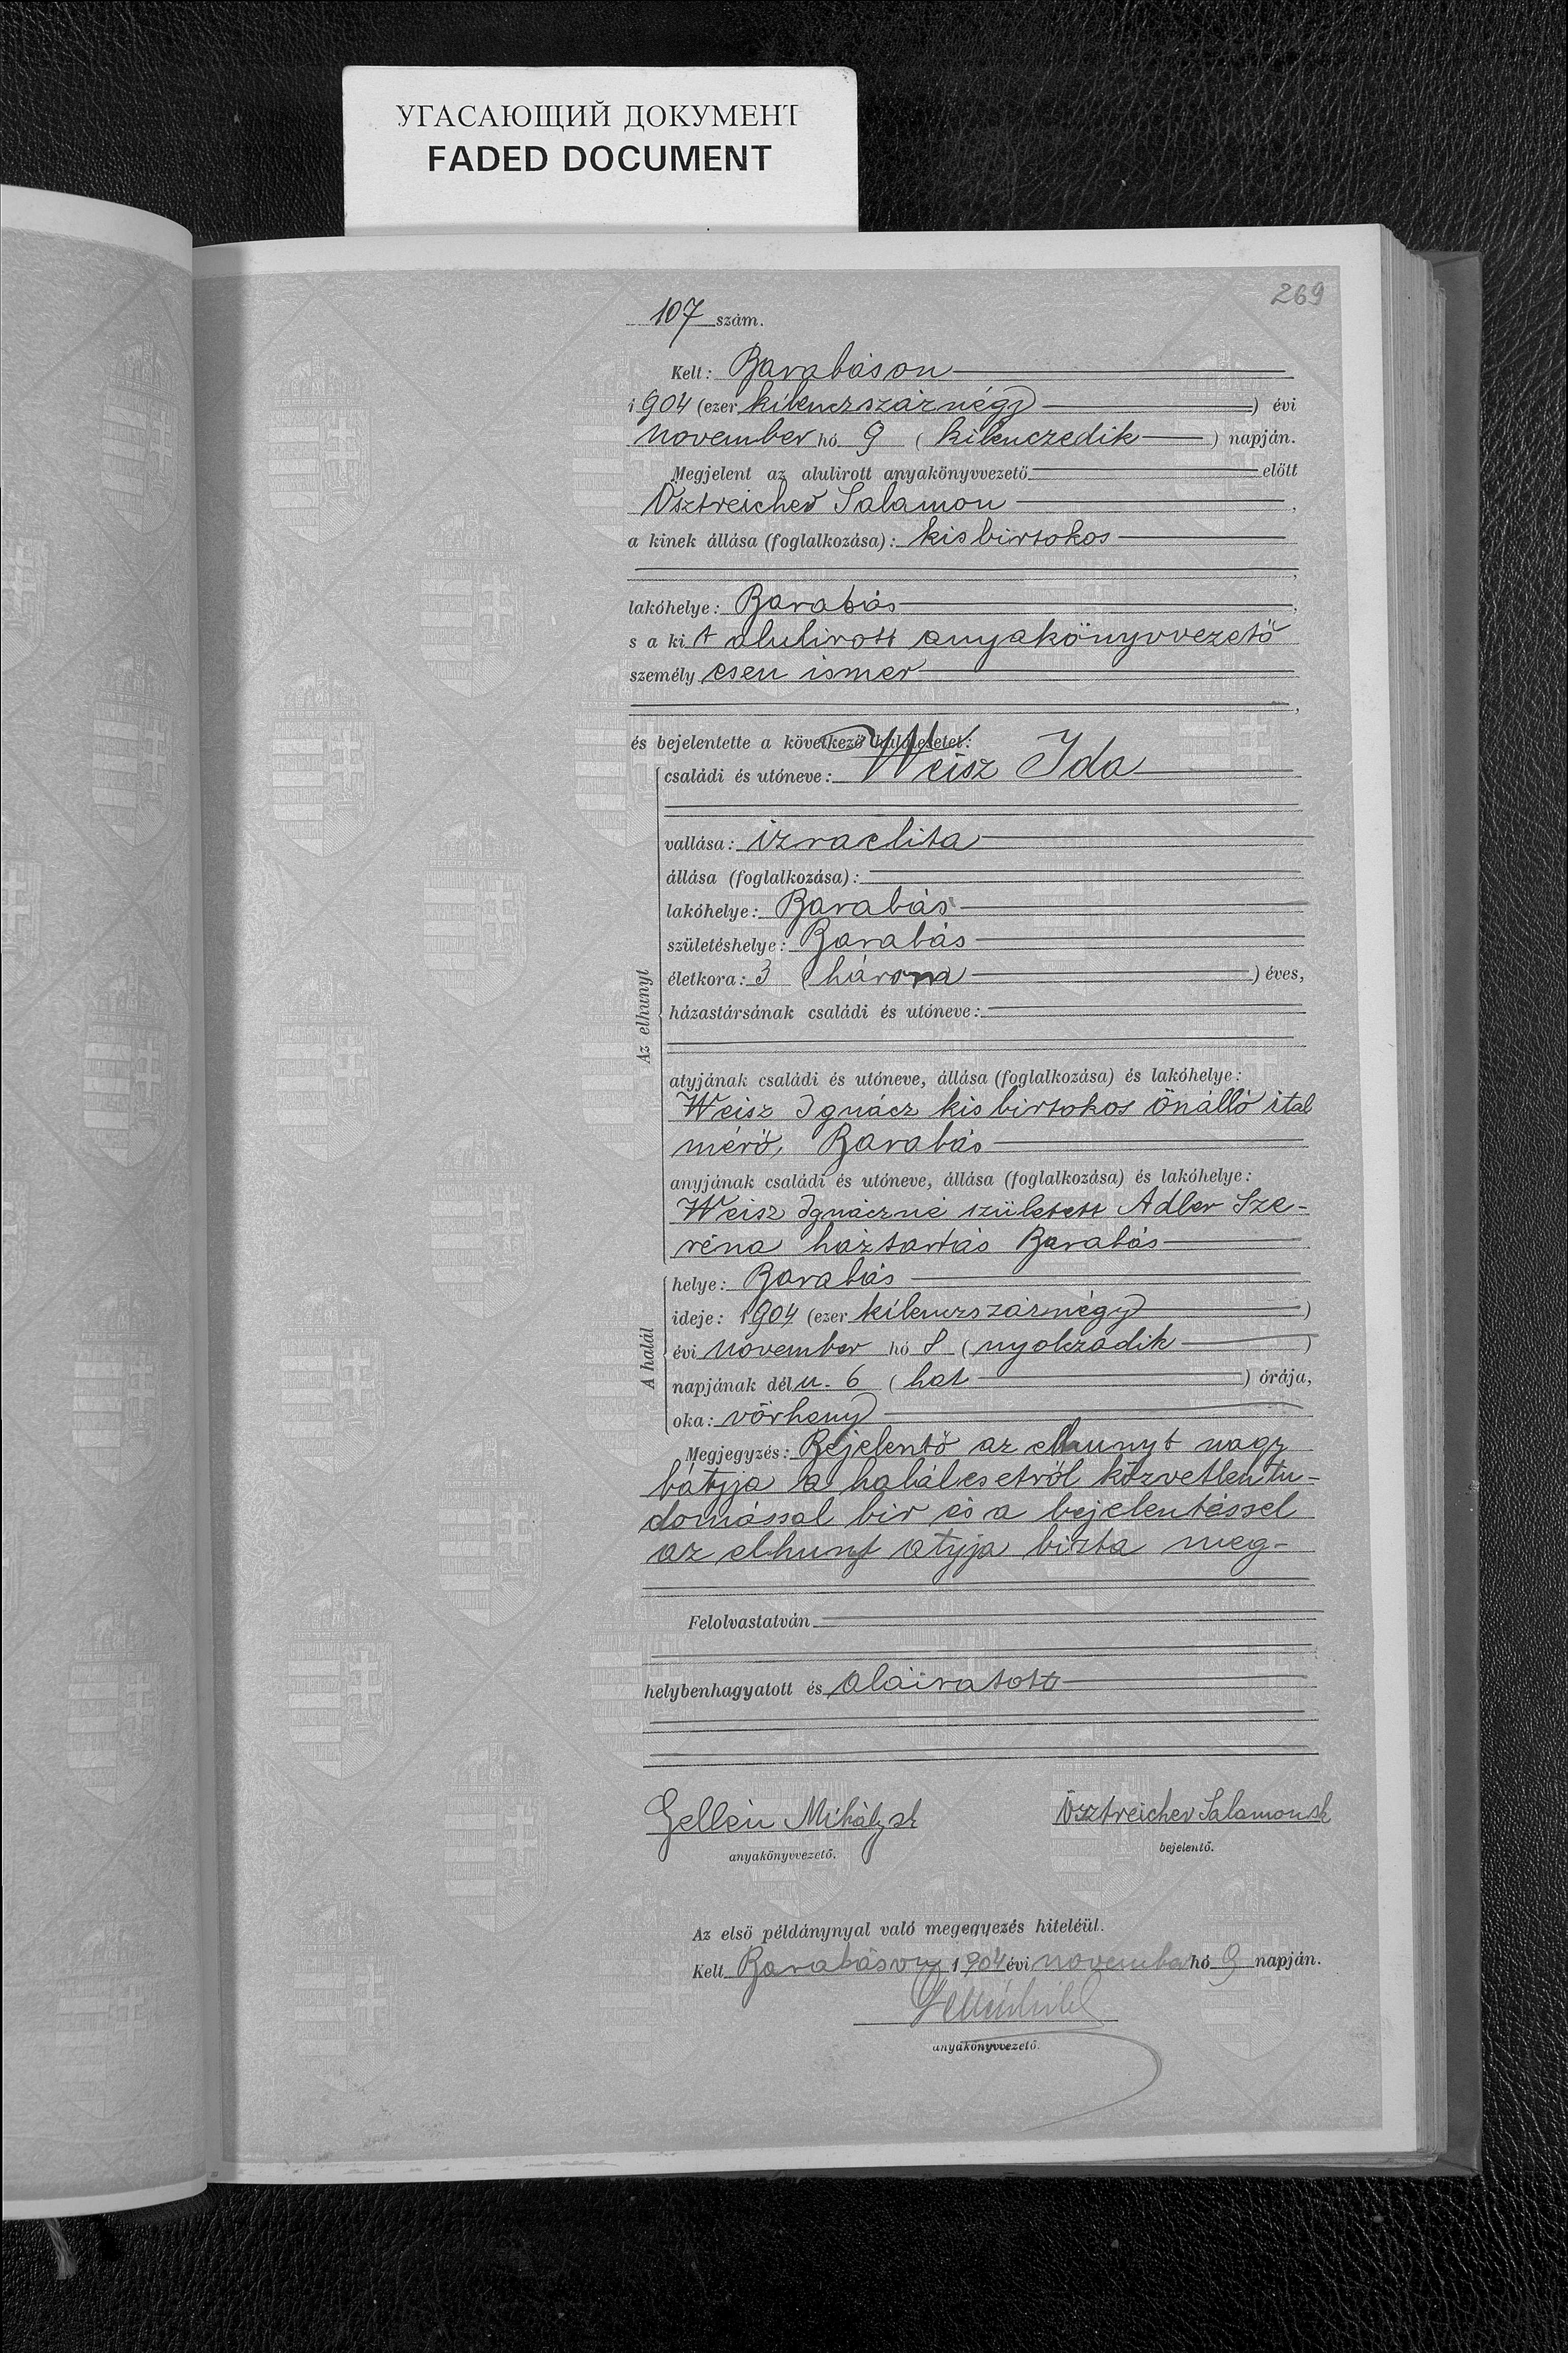 УГАСАЮЩИЙ ДОКУМЕНТ
FADED DOCUMENT
269
107 szám.
Kelt: Barabáson
1904 (ezer kilenczszáznégy) évi
november hó 9 (kilenczedik) napján.
Megjelent az alulirott anyakönyvvezető előtt
Ösztreicher Salamon,
a kinek állása (foglalkozása): kisbirtokos
lakóhelye: Barabás,
s a kit alulirott anyakönyvvezető
személyesen ismer,
és bejelentette a következő halálesetet:
Az elhunyt
családi és utóneve: Weisz Ida
vallása: izraelita
állása (foglalkozása):
lakóhelye: Barabás
születéshelye: Barabás
életkora: 3 (három) éves,
házastársának családi és utóneve:
atyjának családi és utóneve, állása (foglalkozása) és lakóhelye:
Weisz Ignácz kisbirtokos önálló ital
mérő, Barabás
anyjának családi és utóneve, állása (foglalkozása) és lakóhelye:
Weisz Ignáczné született Adler Sze-
réna háztartás Barabás
A halál
helye: Barabás
ideje: 1904 (ezer kilenczszáznégy)
évi november hó 8 (nyolczadik)
napjának délu. 6 (hat) órája,
oka: vörheny
Megjegyzés: Bejelentő az elhunyt nagy
bátyja a halálesetről közvetlen tu-
domással bir és a bejelentéssel
az elhunt atyja bizta meg-
Felolvastatván
helybenhagyatott és aláiratott
Gellén Mihály sk
Ösztreicher Salamon sk
anyakönyvvezető.
bejelentő.
Az első példánynyal való megegyezés hiteléül.
Kelt Barabáson 1904 évi november hó 9 napján.
anyakönyvvezető.